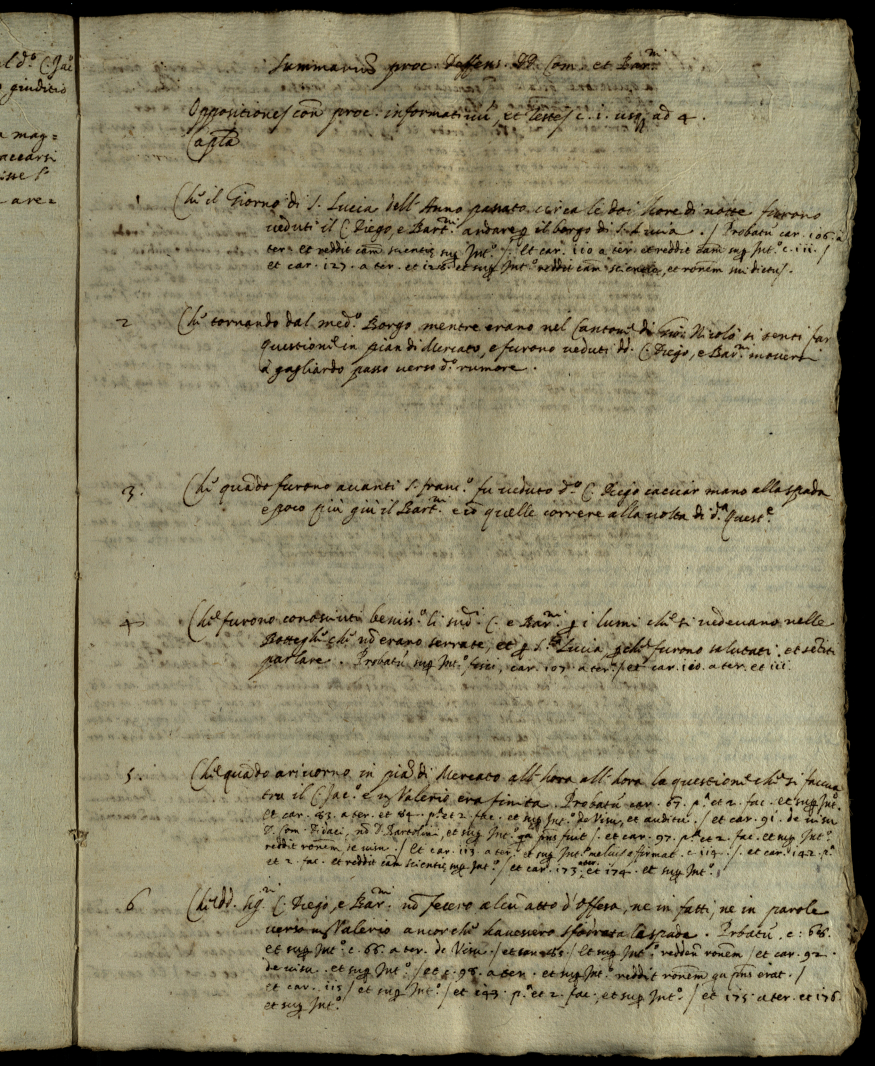 l d.º C. Jac.º
giuditio
a mag=
accarsi
are=
Summariũ proc. deffens. DD. Com. et Bar.ⁿⁱ
Oppositiones con proc. informatiuũ, et testes c. 1. usq; ad 4.
Capta
1 Ch'il Giorno di S. Lucia dell'Anno passato circa le doi hore di notte furono
ueduti il C. Diego, e Bart.ⁿⁱ andare p il borgo di S. Lucia. / Probatũ car. 106. a
ter. et reddit cam̃ scientię sup Int.º / Et car. 110 a ter. et reddit cam̃ sup Int.º c. 111. /
et car. 127. a ter. et 128. et sup Int.º reddit cam̃ scientię, et ronem sui dictus.
2 Ch'tornando dal med.º Borgo mentre erano nel Canton di Nicolò si sentì far
questione in pian di Mercato, e furono ueduti dd. C. Diego, e Bar.ⁿⁱ mouersi
à gagliardo passo verso d.º rumore.
3. Ch' quãdo furono auanti S. franc.º fu ueduto d.º C. Diego cacciar mano alla spada
e poco più giù il Bart.ⁿⁱ e cõ quelle correre alla uolta di d.ª Quest.ᵉ
4 Che furono conosciuti beniss.º li sud.ⁱ C. e Bar.ⁿⁱ p i lumi che si uedeuano nelle
Botteghe che nõ erano serrate, et p S.ᵗᵃ Lucia, pche furono salutati, et sẽtiti
parlare. Probatũ sup Int.º car. 107. a ter. / et car. 110. a ter. et 111.
5. Che quãdo ariuorno in piã di Mercato all'hora all'hora la questione che si faceua
tra il C. Jac.º e Valerio era finita. Probatũ car. 67. p.ª et 2. fac. et sup Int.º
et car. 83. a ter. et 84. p.ª et 2. fac. et sup Int.º de Visu, et auditu / et car. 91. de uisu
nõ D. Bartolini, et sup Int.º qa pñs fuit / et car. 97. p.ª et 2. fac. et sup Int.º
reddit ronem se uisu. / Et car. 113. a ter. et sup Int.º melius affirmat c. 114. / et car. 142. p.ª
et 2. fac. et reddit cam̃ scientię sup Int.º / et car. 173. a ter. et 174. et sup Int.º /
6 Che dd. Sig.ⁿ C. Diego, e Bar.ⁿⁱ nõ fecero alcũ atto d'offesa, ne in fatti, ne in parole
uerso Valerio ancorche hauessero sfodrata la spada. Probatũ c. 68.
et sup Int.º c. 66. a ter. de Visu / Et sup Int.º redden ronem / et car. 92.
de uisu. et sup Int.º / et c. 98. a ter. et sup Int.º reddit ronem qa pñs erat. /
et car. 115 / et sup Int.º / et 143 p.ª et 2. fac., et sup Int.º / et 175 a ter. et 176.
et sup Int.º